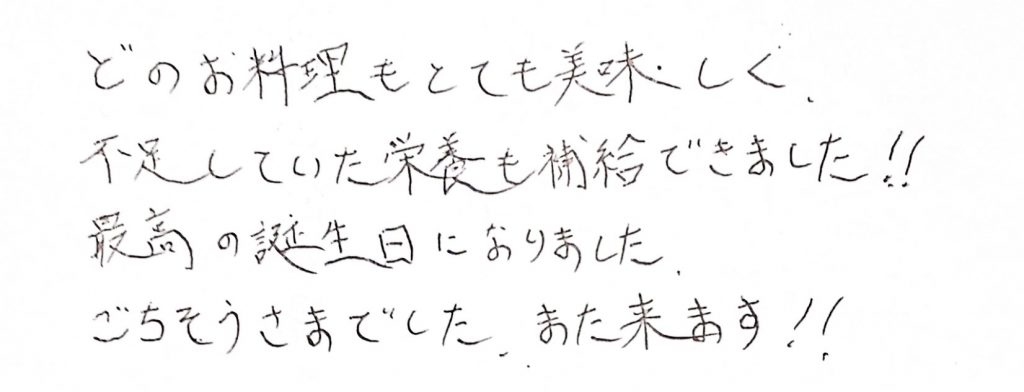 どのお料理もとても美味しく、
不足していた栄養も補給できました!!
最高の誕生日になりました。
ごちそうさまでした。また来ます!!